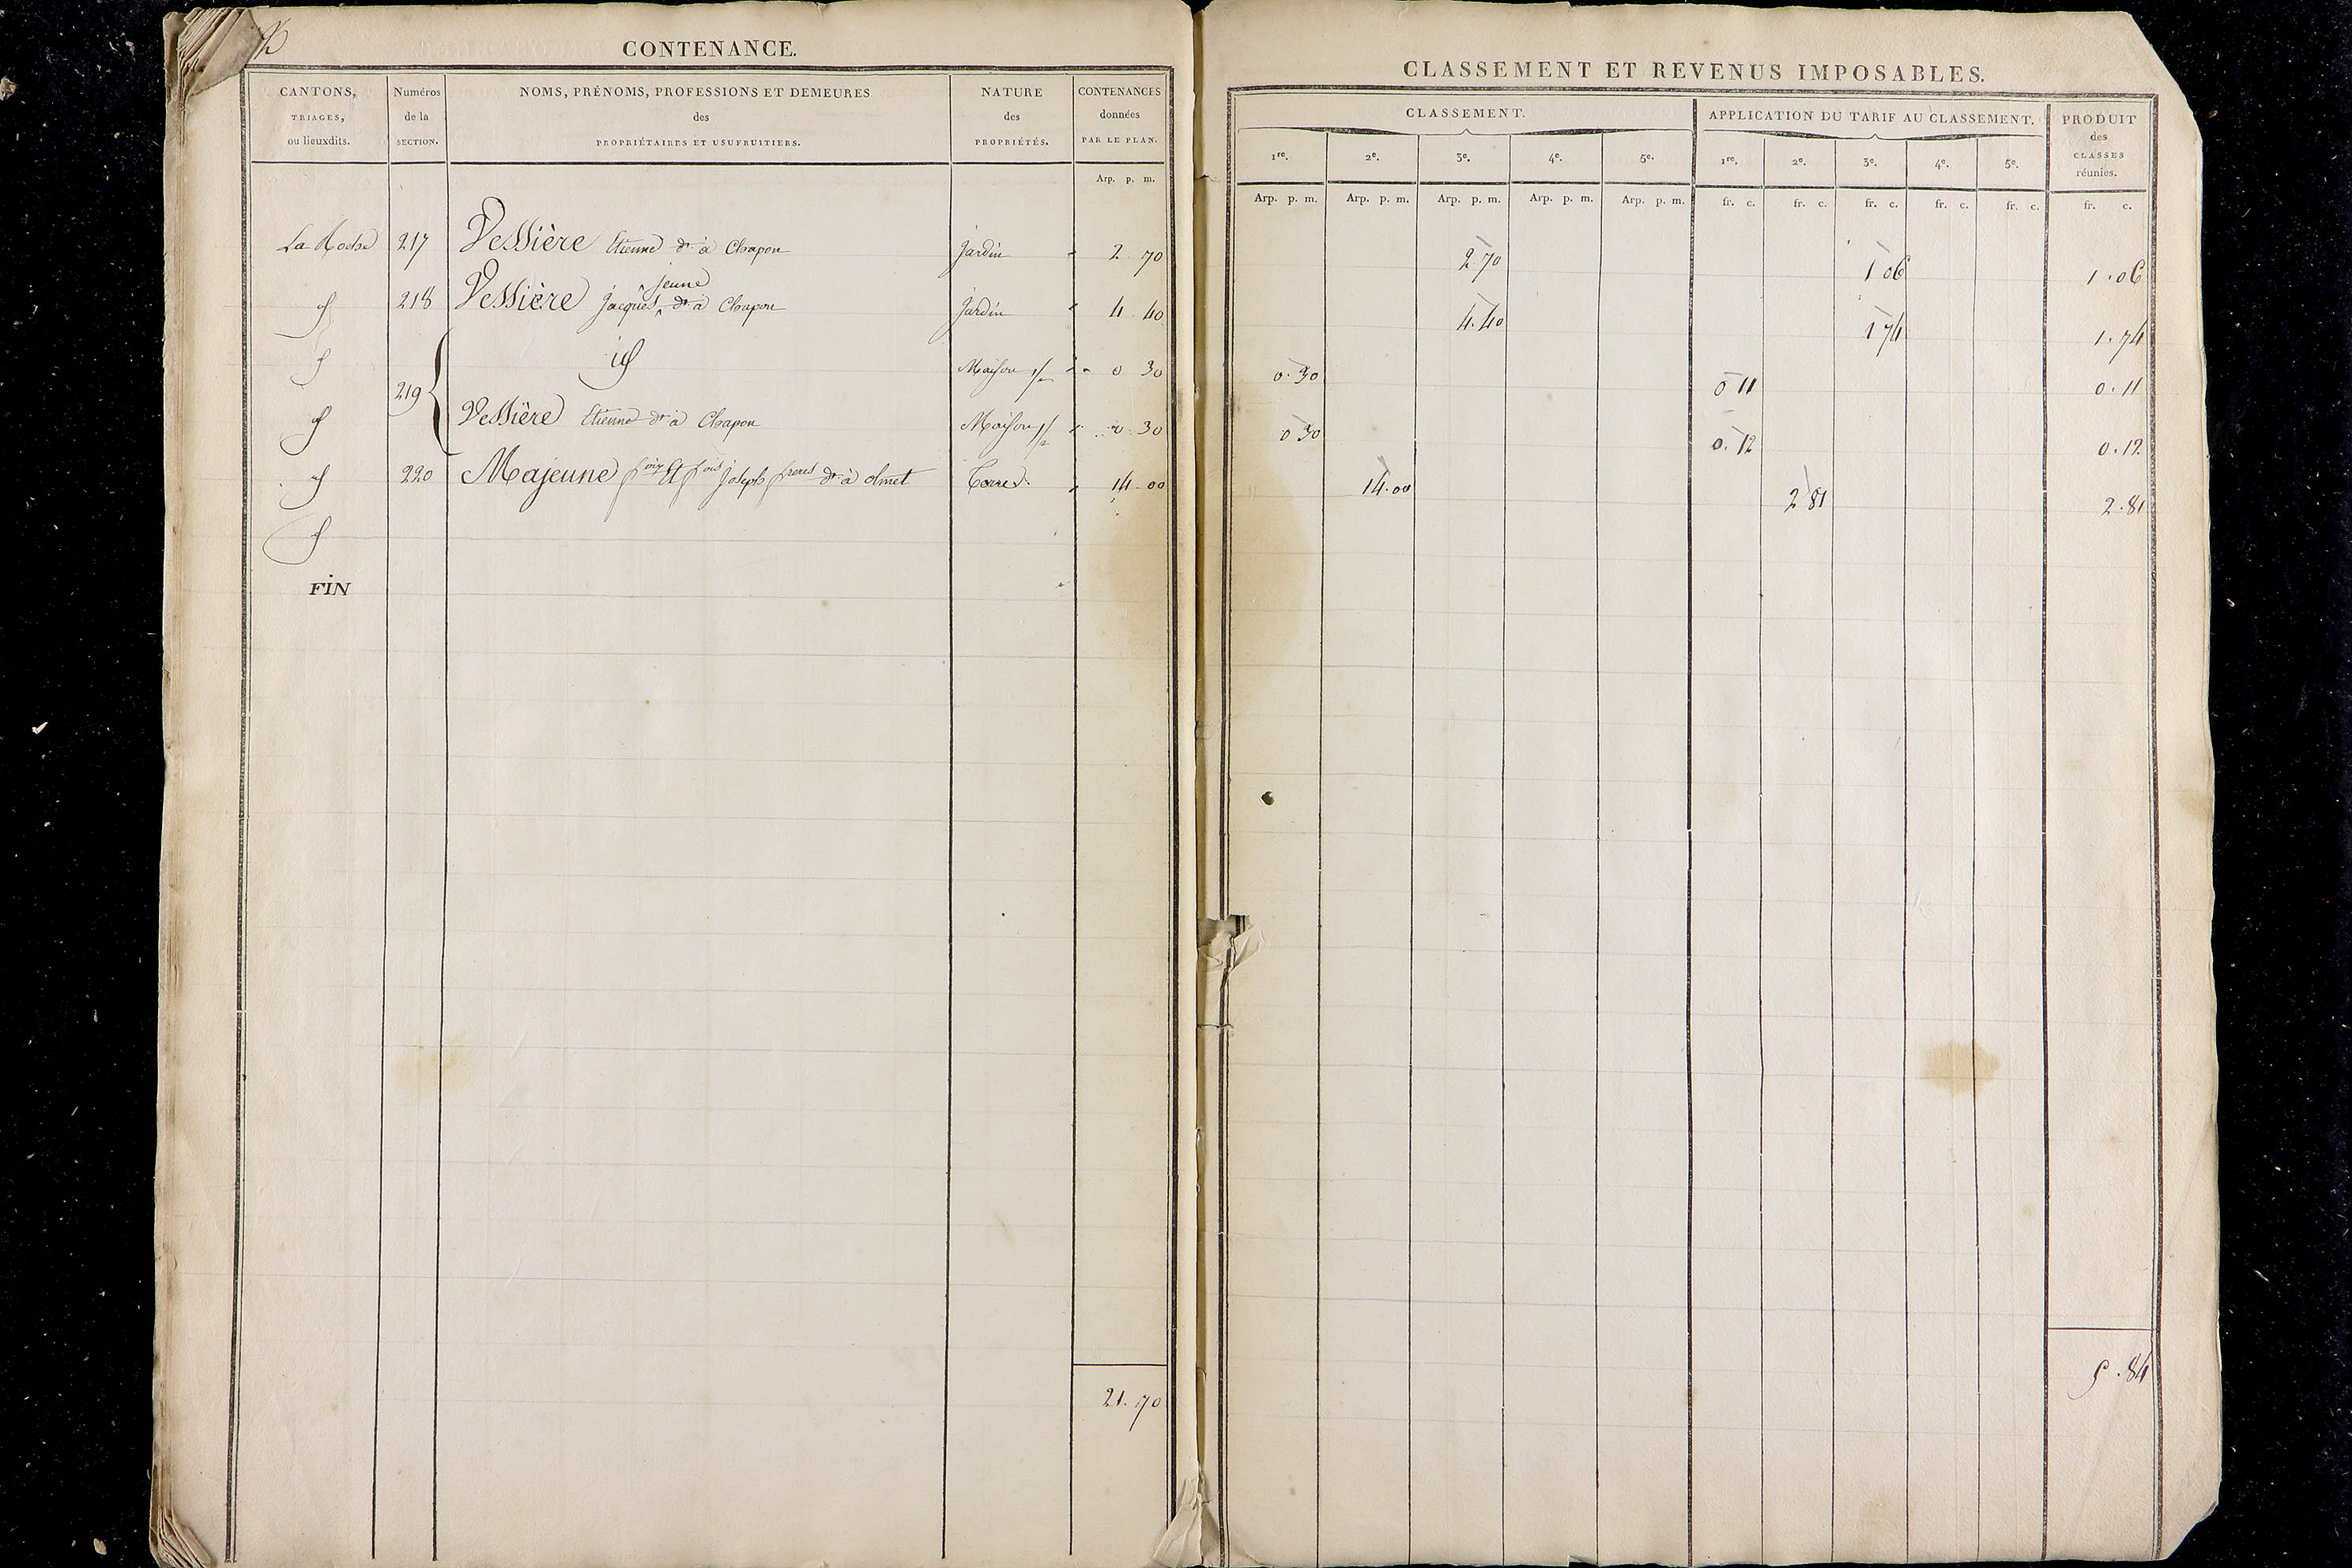 CONTENANCE.
CANTONS, TRIAGES, ou lieuxdits. | Numéros de la SECTION. | NOMS, PRÉNOMS, PROFESSIONS ET DEMEURES des PROPRIÉTAIRES ET USUFRUITIERS. | NATURE des PROPRIÉTÉS. | CONTENANCES données PAR LE PLAN.
Arp. p. m.
La Roche 217 Vessière Etienne dt à Chapon Jardin 2 70
218 Vessière Jacques jeune dt à Chapon Jardin 4 40
219 id Maison 1/2 0 30
Vessière Etienne dt à Chapon Maison 1/2 0 30
220 Majeune Et Joseph freres dt à olmet Terre 14 00
FIN
21.70
CLASSEMENT ET REVENUS IMPOSABLES.
CLASSEMENT. | APPLICATION DU TARIF AU CLASSEMENT. | PRODUIT des CLASSES réunies.
1re. 2e. 3e. 4e. 5e. 1re. 2e. 3e. 4e. 5e.
Arp. p. m. Arp. p. m. Arp. p. m. Arp. p. m. Arp. p. m. fr. c. fr. c. fr. c. fr. c. fr. c. fr. c.
2 70 1 06 1.06
4.40 1 74 1.74
0.30 0 11 0.11
0 30 0.12 0.12
14.00 2 81 2.81
5.84